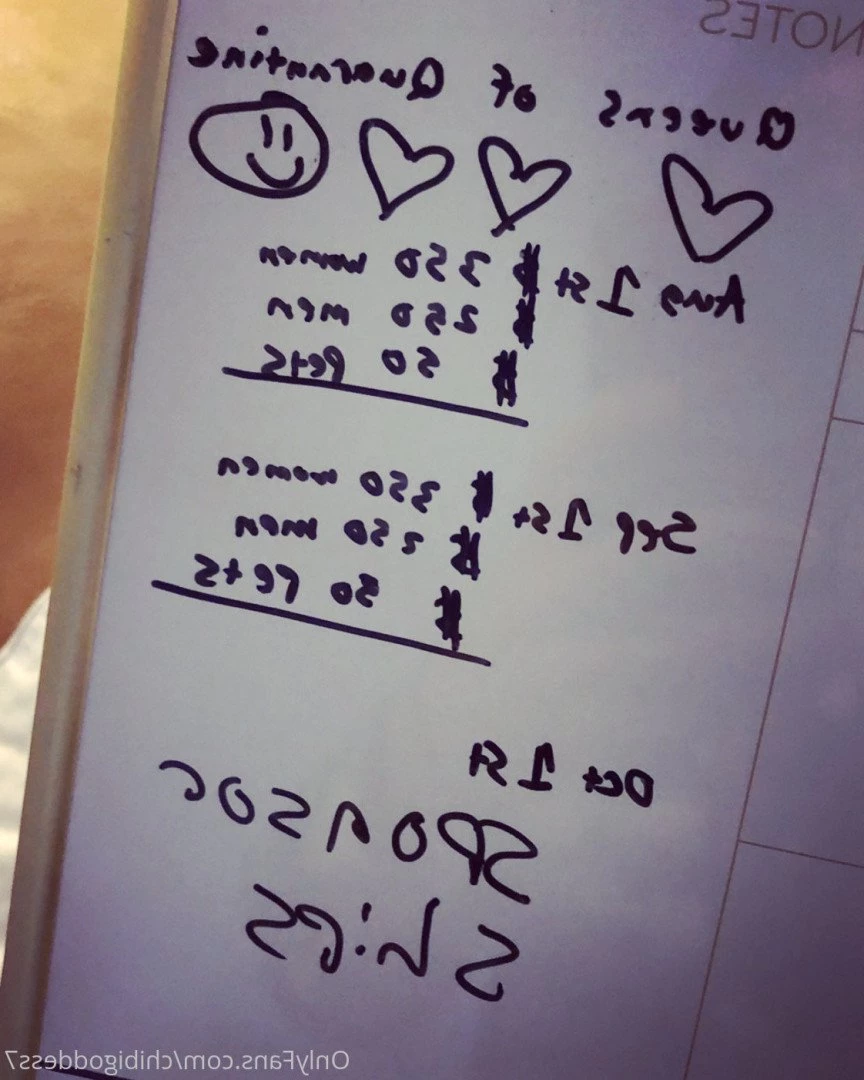 NOTES
Queens of Quarantine
Aug 1st $ 350 women
$ 250 men
$ 50 Pets
Sep 1st $ 350 women
$ 250 men
$ 50 Pets
Oct 1st
Sponsor
Ships
OnlyFans.com/chibigoddess7